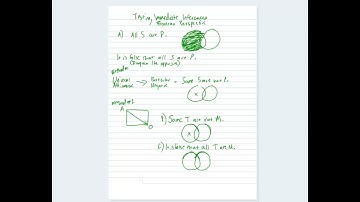 Testing Immediate Inferences
Boolean Perspective
A) All S are P.
It is false that all S are P.
(Diagram the opposite)
Universal → Particular = Some S are not P.
Affirmative Negative
x
A
O
B) Some T are not M.
x
C) It is false that all T are M.